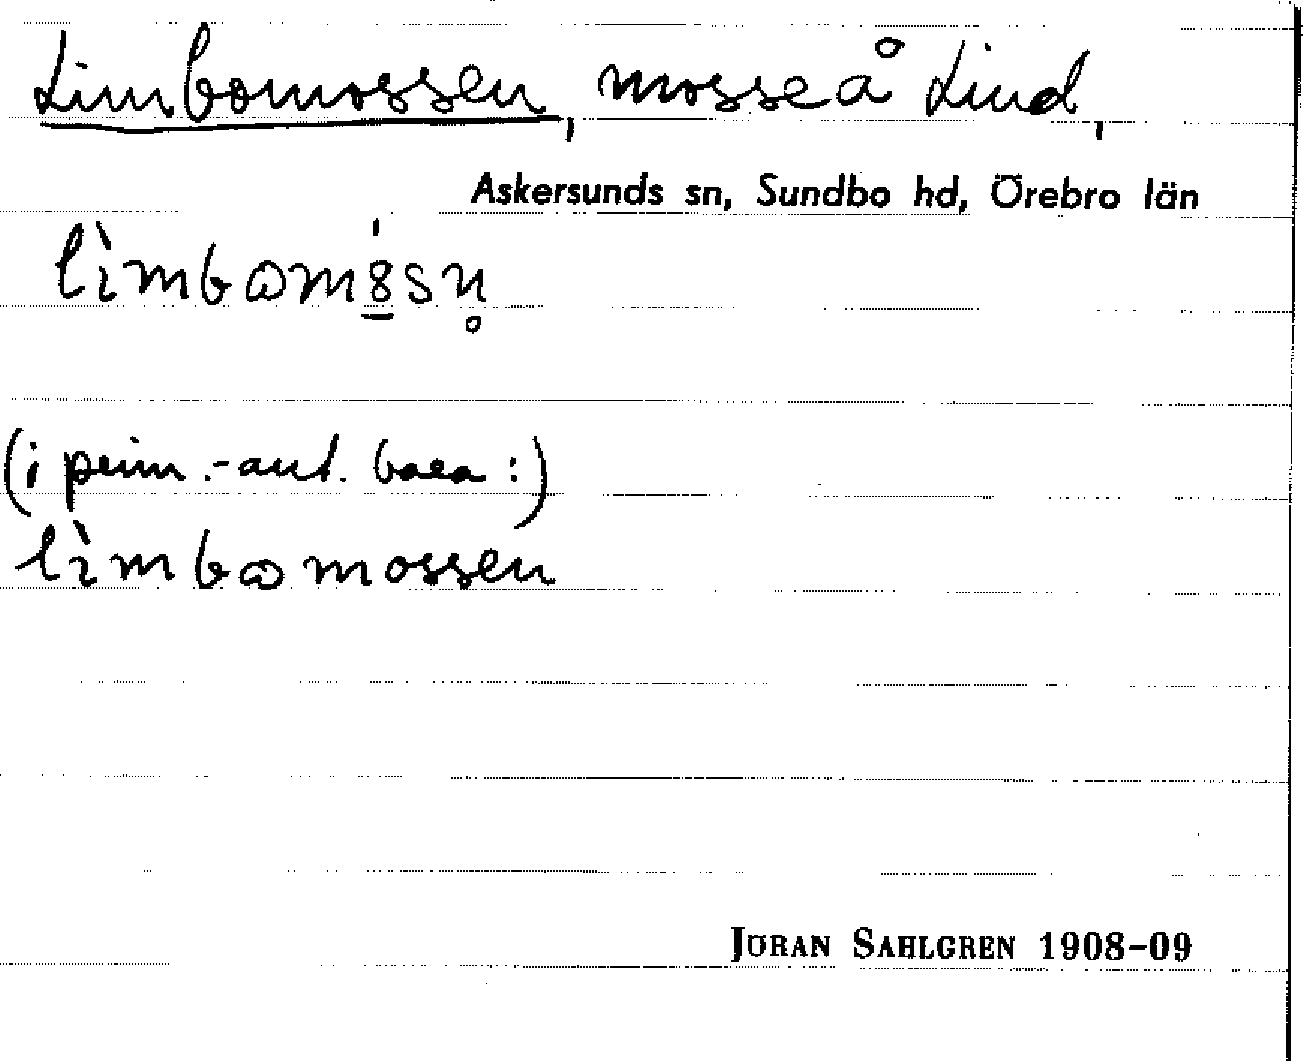 Limbomossen, mosse å Lind,
Askersunds sn, Sundbo hd, Örebro län
lìmbɷm8̲́sn̥
(i prim.-ant. bara:)
lìmbɷmossen
JÖRAN SAHLGREN 1908-09